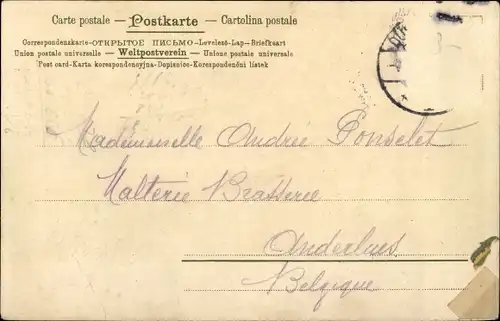 Carte postale — Postkarte — Cartolina postale
Correspondenzkarte-ОТКРЫТОЕ ПИСЬМО-Levelező-Lap-Briefkaart
Union postale universelle — Weltpostverein — Unione postale universale
Post card-Karta korespondencyjna-Dopisnice-Korespondenční lístek
Mademoiselle Andrée Ponselet
Malterie Brasserie
Anderlues
Belgique